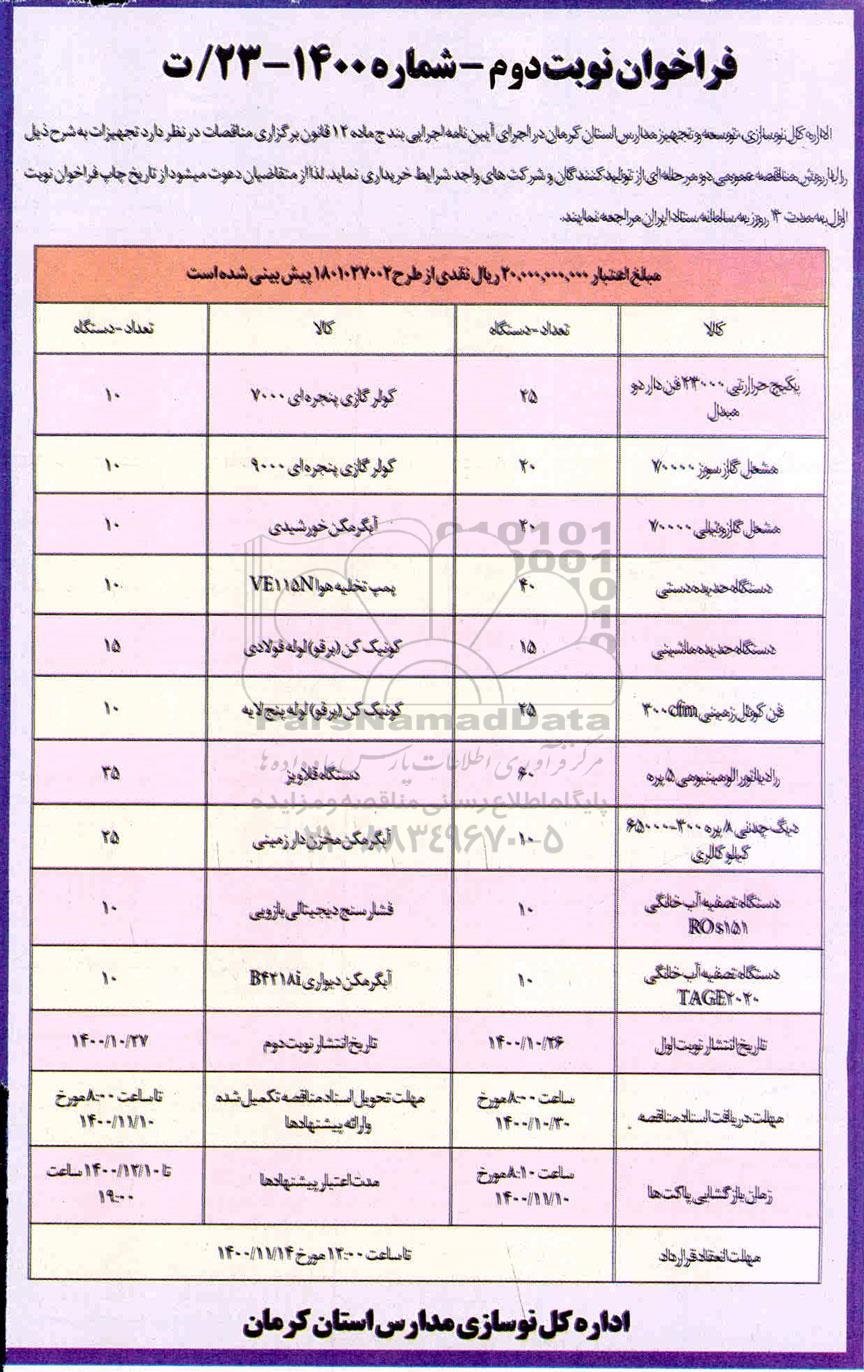 فراخوان نوبت دوم - شماره ۱۴۰۰-۲۳/ت
اداره کل نوسازی، توسعه و تجهیز مدارس استان کرمان در اجرای آیین نامه اجرایی بند ج ماده ۱۲ قانون برگزاری مناقصات در نظر دارد تجهیزات به شرح ذیل
را با روش مناقصه عمومی دو مرحله ای از تولید کنندگان و شرکت های واجد شرایط خریداری نماید. لذا از متقاضیان دعوت میشود از تاریخ چاپ فراخوان نوبت
اول به مدت ۴ روز به سامانه ستاد ایران مراجعه نمایند.
مبلغ اعتبار ۲۰,۰۰۰,۰۰۰,۰۰۰ ریال نقدی از طرح ۱۸۰۱۰۲۷۰۰۲ پیش بینی شده است
کالا تعداد-دستگاه کالا تعداد-دستگاه
پکیج حرارتی ۲۴۰۰۰ فن دار دو
مبدل ۲۵ کولر گازی پنجره ای ۷۰۰۰ ۱۰
مشعل گازسوز ۷۰۰۰۰ ۲۰ کولر گازی پنجره ای ۹۰۰۰ ۱۰
مشعل گازوئیلی ۷۰۰۰۰ ۲۰ آبگرمکن خورشیدی ۱۰
دستگاه حدیده دستی ۴۰ پمپ تخلیه هوا VE۱۱۵N ۱۰
دستگاه حدیده ماشینی ۱۵ کونیک کن (برقو) لوله فولادی ۱۵
فن کوئل زمینی ۳۰۰cfm ۲۵ کونیک کن (برقو) لوله پنج لایه ۱۰
رادیاتور آلومینیومی ۵ پره ۶۰ دستگاه قلاویز ۳۵
دیگ چدنی ۸ پره ۳۰۰-۶۵۰۰۰
کیلو کالری ۱۰ آبگرمکن مخزن دار زمینی ۲۵
دستگاه تصفیه آب خانگی
ROs۱۵۱ ۱۰ فشار سنج دیجیتالی بازویی ۱۰
دستگاه تصفیه آب خانگی
TAGE۲۰۲۰ ۱۰ آبگرمکن دیواری B۴۲۱۸i ۱۰
تاریخ انتشار نوبت اول ۱۴۰۰/۱۰/۲۶ تاریخ انتشار نوبت دوم ۱۴۰۰/۱۰/۲۷
مهلت دریافت اسناد مناقصه ساعت ۸:۰۰ مورخ
۱۴۰۰/۱۰/۳۰ مهلت تحویل اسناد مناقصه تکمیل شده
و ارائه پیشنهادها تا ساعت ۸:۰۰ مورخ
۱۴۰۰/۱۱/۱۰
زمان بازگشایی پاکت ها ساعت ۸:۱۰ مورخ
۱۴۰۰/۱۱/۱۰ مدت اعتبار پیشنهادها تا ۱۴۰۰/۱۲/۱۰ ساعت
۱۹:۰۰
مهلت انعقاد قرارداد تا ساعت ۱۲:۰۰ مورخ ۱۴۰۰/۱۱/۱۴
اداره کل نوسازی مدارس استان کرمان
ParsNamadData
مرکز فرآوری اطلاعات پارس نماد داده ها
پایگاه اطلاع رسانی مناقصه و مزایده
۰۲۱-۸۸۳۴۹۶۷۰-۵